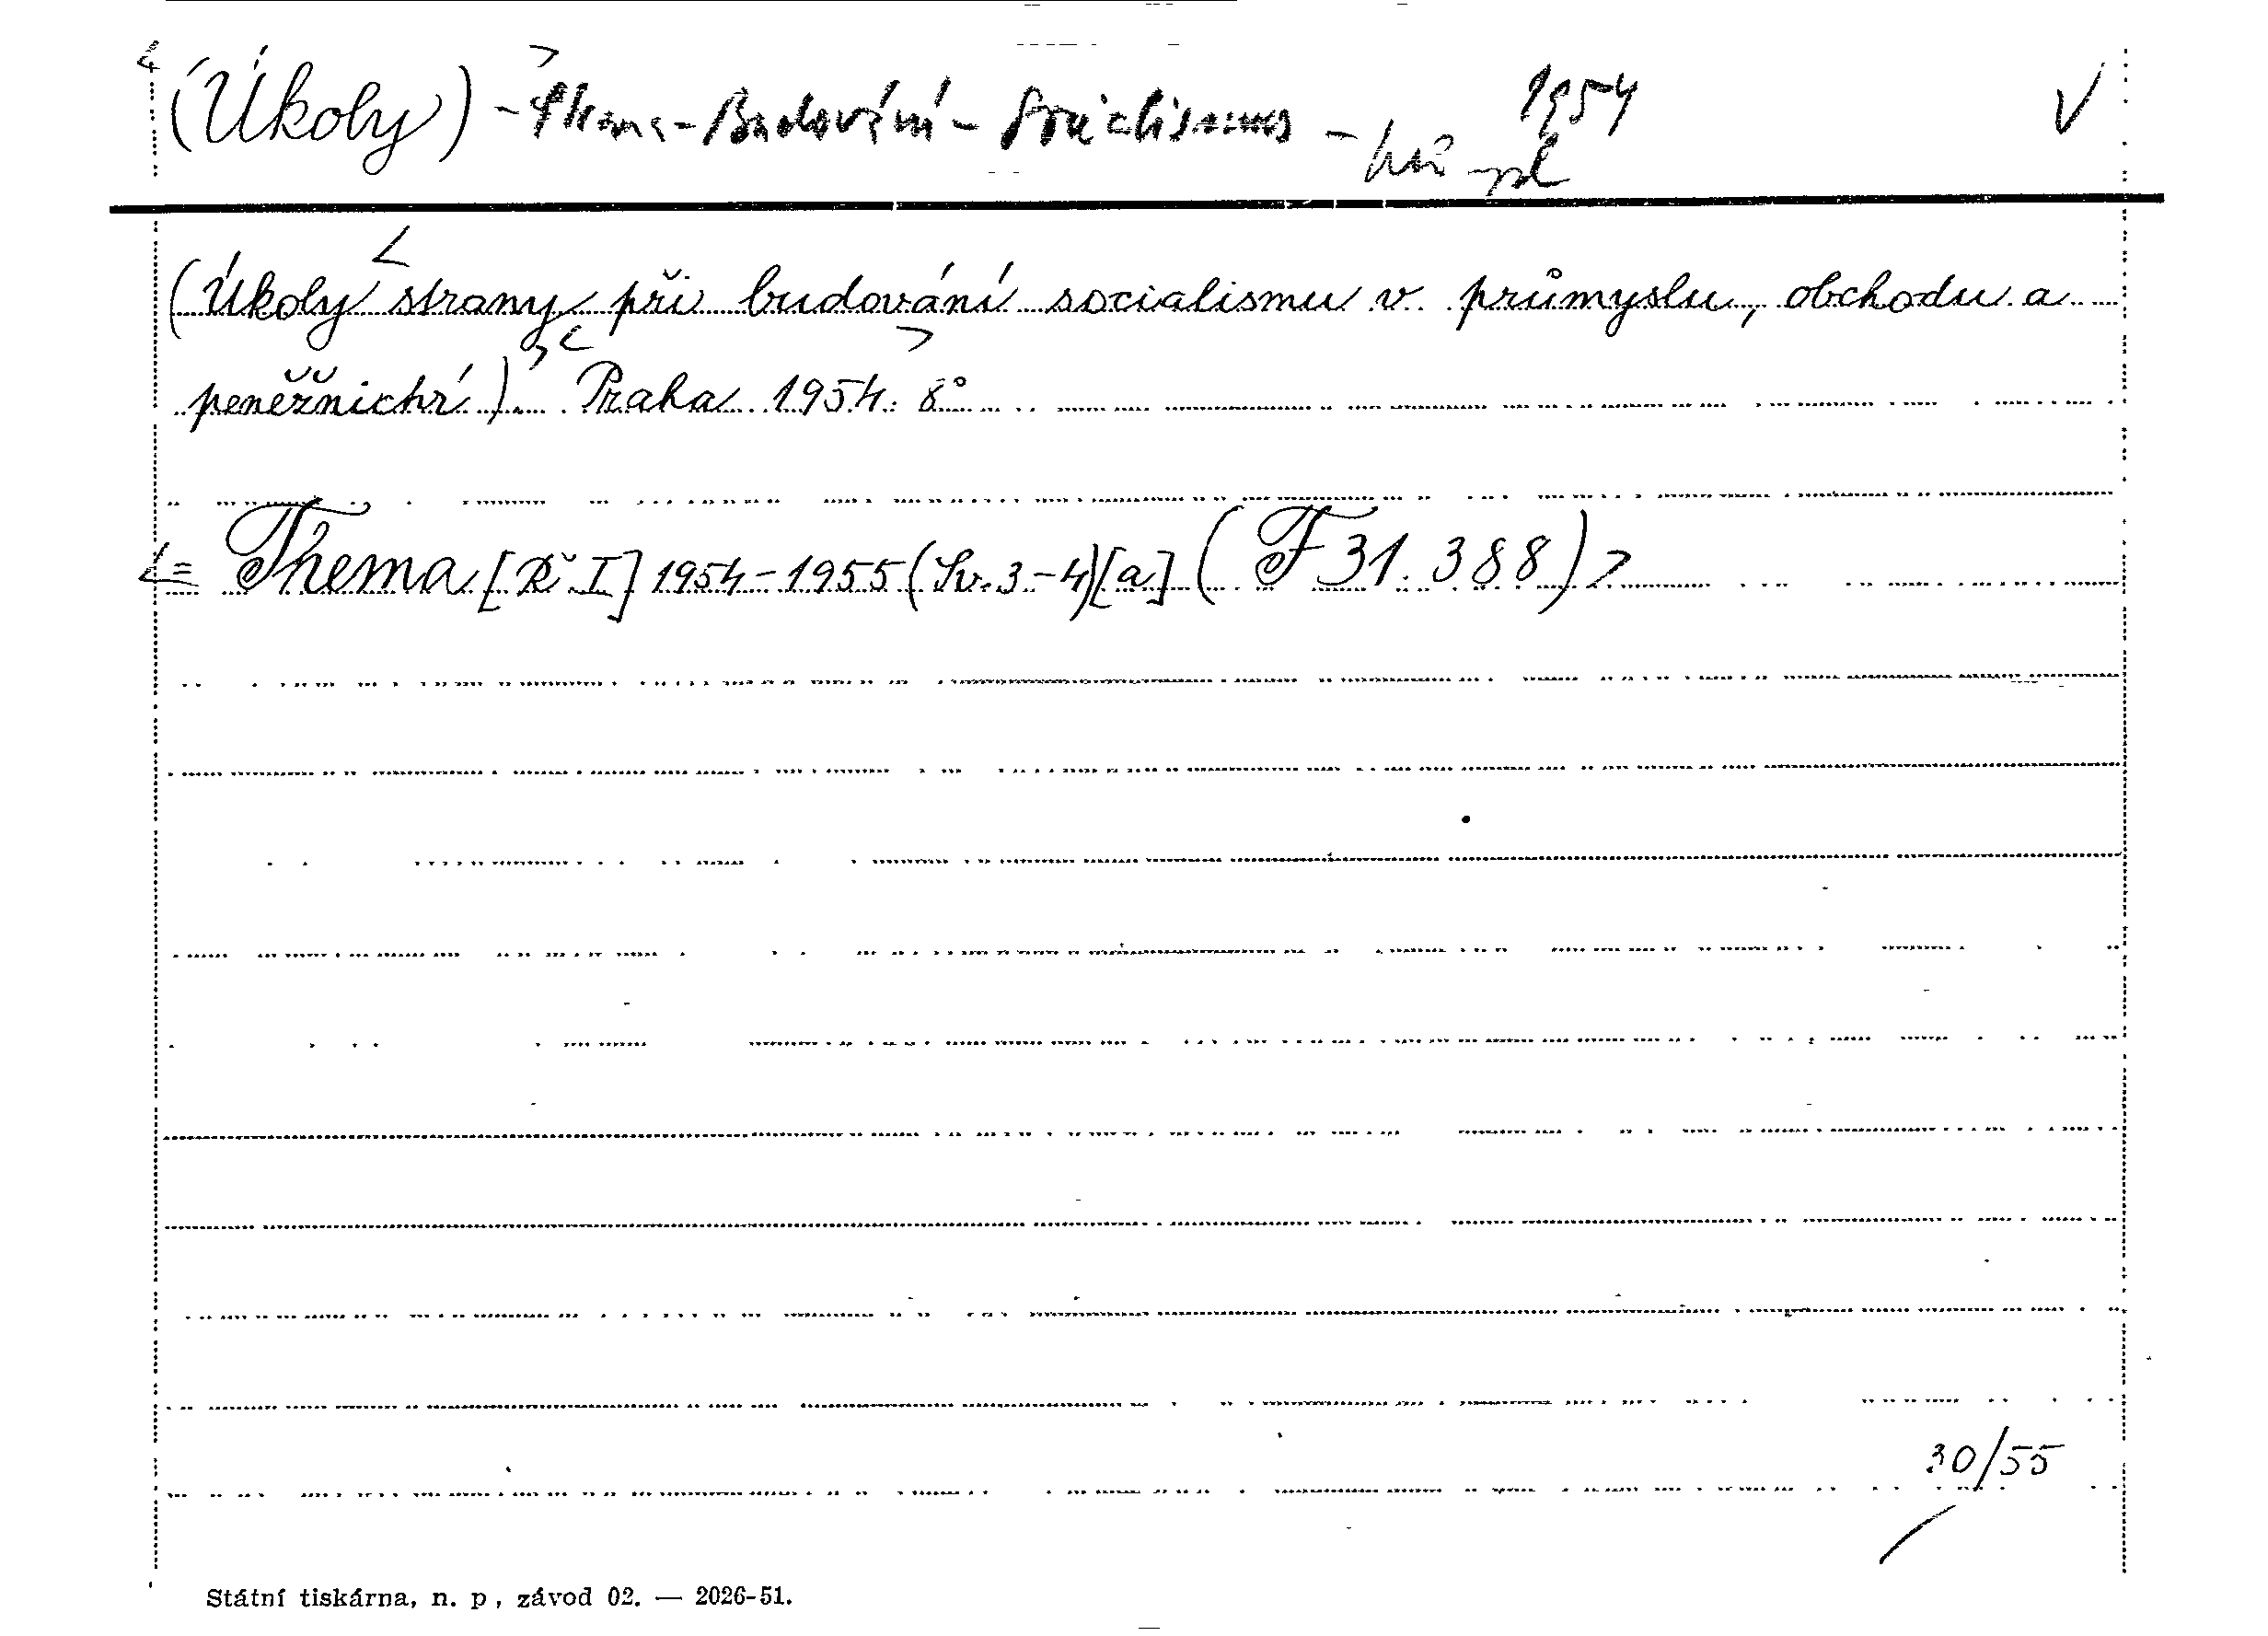 (Úkoly) - Strana - Budování - Socialismus - 1954
V
(Úkoly strany při budování socialismu v průmyslu, obchodu a
peněžnictví). Praha 1954. 8°
= Thema [Ř. I] 1954-1955 (Sv. 3-4) [a] (F 31.388)
30/55
Státní tiskárna, n. p., závod 02. — 2026-51.